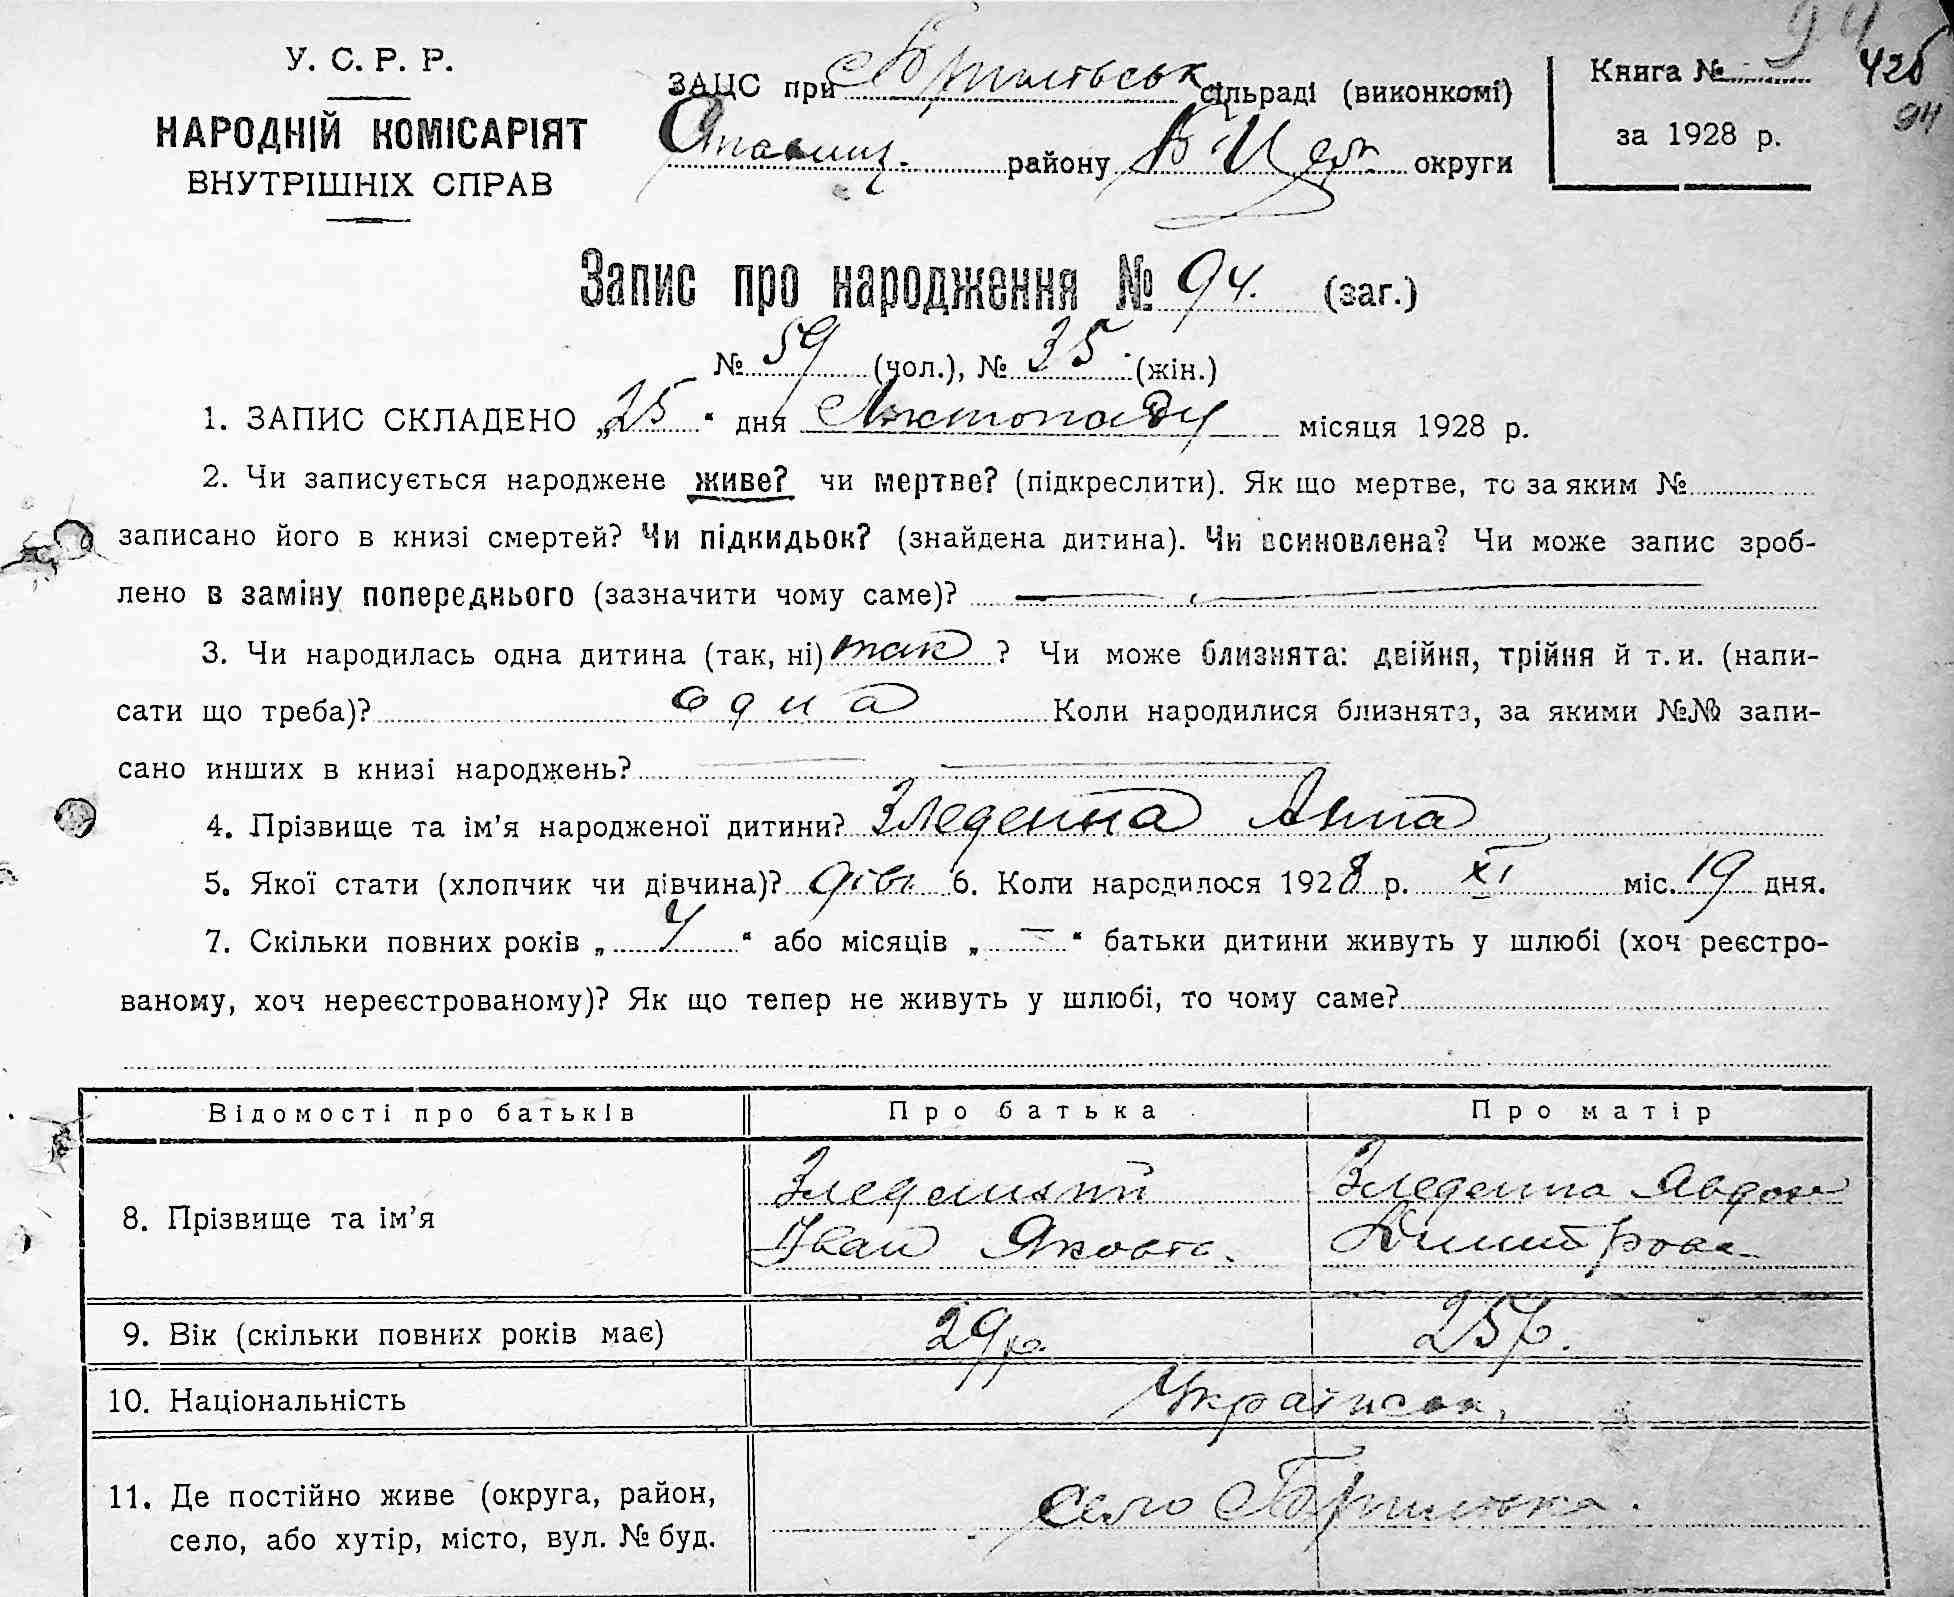 У. С. Р. Р.
НАРОДНІЙ КОМІСАРІЯТ
ВНУТРІШНІХ СПРАВ
ЗАЦС при сільраді (виконкомі)
району Б Церк округи
Книга №
за 1928 р.
94
426
94
Запис про народження № 94. (заг.)
№ 59 (чол.), № 35 (жін.)
1. ЗАПИС СКЛАДЕНО „25“ дня Листопаду місяця 1928 р.
2. Чи записується народжене живе? чи мертве? (підкреслити). Як що мертве, то за яким №
записано його в книзі смертей? Чи підкидьок? (знайдена дитина). Чи всиновлена? Чи може запис зроб-
лено в заміну попереднього (зазначити чому саме)?
3. Чи народилась одна дитина (так, ні) так ? Чи може близнята: двійня, трійня й т. и. (напи-
сати що треба)? одна Коли народилися близнята, за якими №№ запи-
сано инших в книзі народжень?
4. Прізвище та ім’я народженої дитини? Зледенна Анна
5. Якої стати (хлопчик чи дівчина)? дівч 6. Коли народилося 1928 р. XI міс. 19 дня.
7. Скільки повних років „ “ або місяців „ – “ батьки дитини живуть у шлюбі (хоч реєстро-
ваному, хоч нереєстрованому)? Як що тепер не живуть у шлюбі, то чому саме?
Відомості про батьків Про батька Про матір
8. Прізвище та ім’я
Іван Яковів. Зледенна Явдох
Димитрова
9. Вік (скільки повних років має) 29 р. 25 р.
10. Національність Українськ.
11. Де постійно живе (округа, район,
село, або хутір, місто, вул. № буд.
село